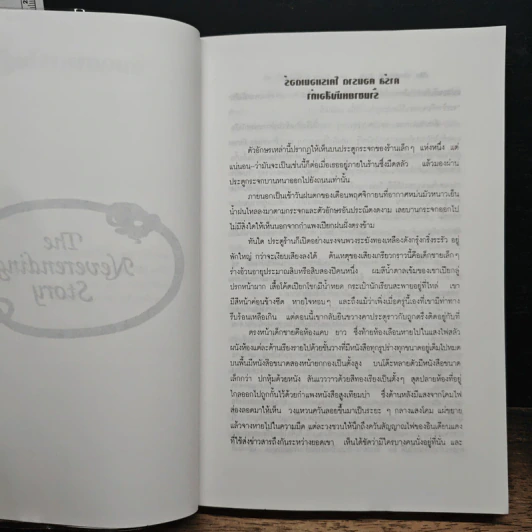 The
Neverending
Story
คาร์ล คอนราด โคเรนเดอร์
ร้านขายหนังสือเก่า
ตัวอักษรเหล่านี้ปรากฏให้เห็นบนประตูกระจกของร้านเล็กๆ แห่งหนึ่ง แต่
แน่นอน–ว่ามันจะเป็นเช่นนี้ก็ต่อเมื่อเธออยู่ภายในร้านซึ่งมืดสลัว แล้วมองผ่าน
ประตูกระจกบานหนาออกไปยังถนนเท่านั้น
ภายนอกเป็นเช้าวันฝนตกของเดือนพฤศจิกายนที่อากาศหม่นมัวหนาวเย็น
น้ำฝนไหลลงมาตามกระจกและตัวอักษรอันประณีตงดงาม เลยบานกระจกออกไป
ไม่มีสิ่งใดให้เห็นนอกจากกำแพงเปียกฝนฝั่งตรงข้าม
ทันใด ประตูร้านก็เปิดอย่างแรงจนพวงระฆังทองเหลืองดังกรุ๋งกริ๋งระรัว อยู่
พักใหญ่ กว่าจะเงียบเสียงลงได้ ต้นเหตุของเสียงเกรียวกราวนี้คือเด็กชายเล็กๆ
ร่างอ้วนอายุประมาณสิบหรือสิบสองปีคนหนึ่ง ผมสีน้ำตาลเข้มของเขาเปียกลู่
ปรกหน้าผาก เสื้อโค้ตเปียกโชกมีน้ำหยด กระเป๋านักเรียนสะพายอยู่ที่ไหล่ เขา
มีสีหน้าค่อนข้างซีด หายใจหอบๆ และถึงแม้ว่าเพิ่งเมื่อครู่นี้เองที่เขามีท่าทาง
รีบร้อนเหลือเกิน แต่ตอนนี้เขากลับยืนขวางคาประตูราวกับถูกตรึงติดอยู่กับที่
ตรงหน้าเด็กชายคือห้องแคบ ยาว ซึ่งท้ายห้องเลือนหายไปในแสงไฟสลัว
ผนังห้องแต่ละด้านเรียงรายไปด้วยชั้นวางที่มีหนังสือทุกรูปร่างทุกขนาดอยู่เต็มไปหมด
บนพื้นมีหนังสือขนาดสองหน้ายกกองเป็นตั้งสูง บนโต๊ะหลายตัวมีหนังสือขนาด
เล็กกว่า ปกหุ้มด้วยหนัง สันแวววาวด้วยสีทองเรียงเป็นตั้งๆ สุดปลายห้องที่อยู่
ไกลออกไปถูกกั้นไว้ด้วยกำแพงหนังสือสูงเทียมบ่า ซึ่งด้านหลังมีแสงจากโคมไฟ
ส่องลอดมาให้เห็น วงแหวนควันลอยขึ้นมาเป็นระยะๆ กลางแสงโคม แผ่ขยาย
แล้วจางหายไปในความมืด แต่ละวงชวนให้นึกถึงควันสัญญาณไฟของอินเดียนแดง
ที่ใช้ส่งข่าวสารถึงกันระหว่างยอดเขา เห็นได้ชัดว่ามีใครบางคนนั่งอยู่ที่นั่น และ